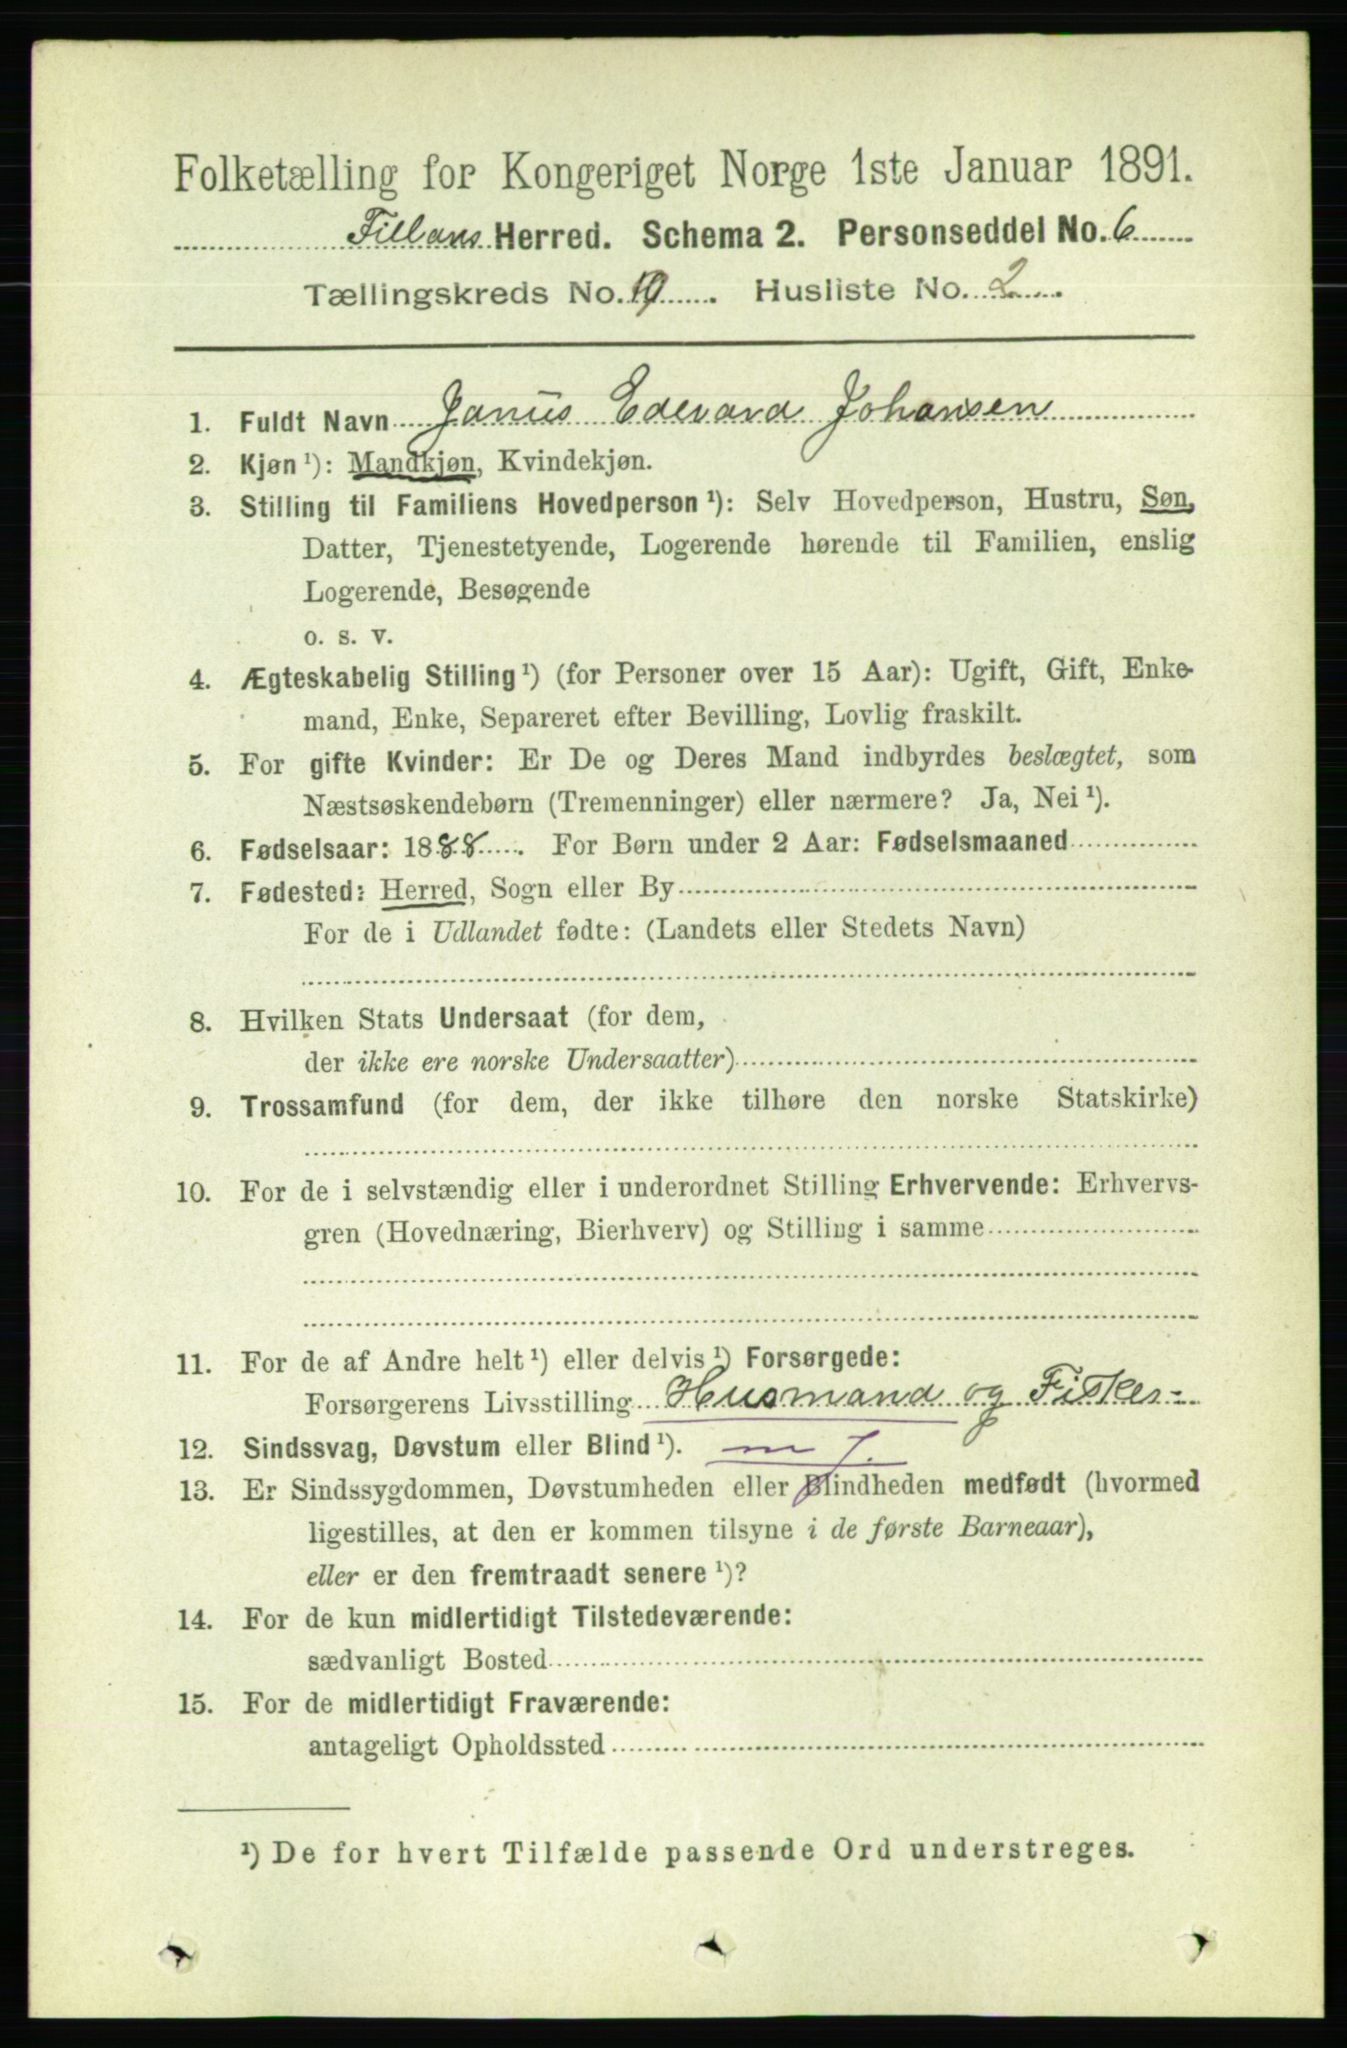 Folketælling for Kongeriget Norge 1ste Januar 1891.
Fillans Herred. Schema 2. Personseddel No. 6
Tællingskreds No. Husliste No. 2
1. Fuldt Navn Janius Edevard Johansen
2. Kjøn ¹): Mandkjøn, Kvindekjøn.
3. Stilling til Familiens Hovedperson ¹): Selv Hovedperson, Hustru, Søn,
Datter, Tjenestetyende, Logerende hørende til Familien, enslig
Logerende, Besøgende
o. s. v.
4. Ægteskabelig Stilling ¹) (for Personer over 15 Aar): Ugift, Gift, Enke-
mand, Enke, Separeret efter Bevilling, Lovlig fraskilt.
5. For gifte Kvinder: Er De og Deres Mand indbyrdes beslægtet, som
Næstsøskendebørn (Tremenninger) eller nærmere? Ja, Nei ¹).
6. Fødselsaar: 1888. For Børn under 2 Aar: Fødselsmaaned
7. Fødested: Herred, Sogn eller By
For de i Udlandet fødte: (Landets eller Stedets Navn)
8. Hvilken Stats Undersaat (for dem,
der ikke ere norske Undersaatter)
9. Trossamfund (for dem, der ikke tilhøre den norske Statskirke)
10. For de i selvstændig eller i underordnet Stilling Erhvervende: Erhvervs-
gren (Hovednæring, Bierhverv) og Stilling i samme
11. For de af Andre helt ¹) eller delvis ¹) Forsørgede:
Forsørgerens Livsstilling Husmand og Fisker
12. Sindssvag, Døvstum eller Blind ¹).
13. Er Sindssygdommen, Døvstumheden eller Blindheden medfødt (hvormed
ligestilles, at den er kommen tilsyne i de første Barneaar),
eller er den fremtraadt senere ¹)?
14. For de kun midlertidigt Tilstedeværende:
sædvanligt Bosted
15. For de midlertidigt Fraværende:
antageligt Opholdssted
¹) De for hvert Tilfælde passende Ord understreges.